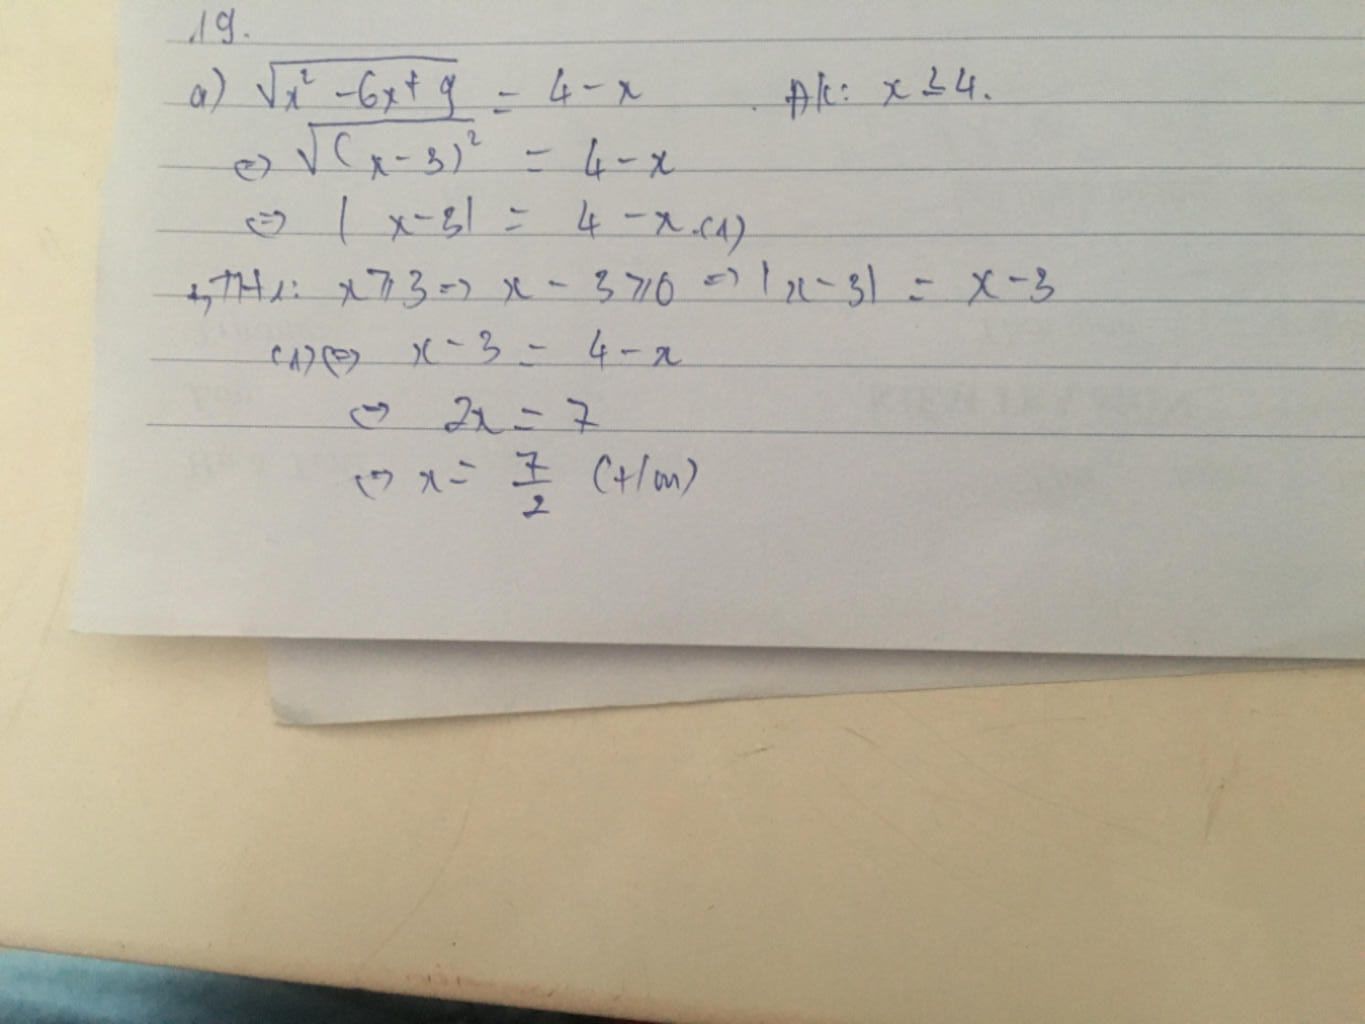 19.
a) √(x² - 6x + 9) = 4 - x ĐK: x ≤ 4.
⇔ √((x - 3)²) = 4 - x
⇔ |x - 3| = 4 - x (1)
+, TH1: x ≥ 3 => x - 3 ≥ 0 => |x - 3| = x - 3
(1) ⇔ x - 3 = 4 - x
⇔ 2x = 7
⇔ x = 7/2 (t/m)